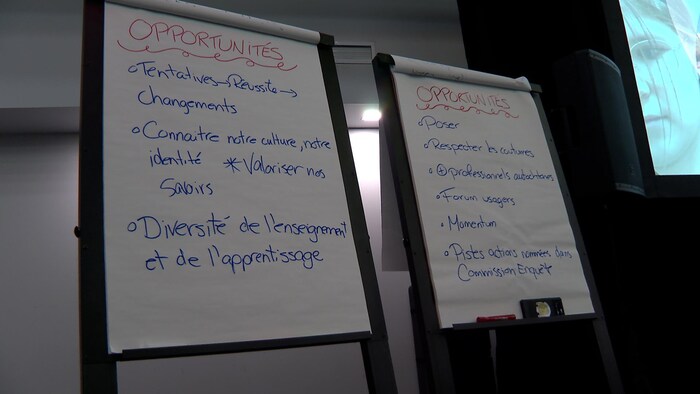 OPPORTUNITÉS
Tentatives → Réussite →
Changements
Connaitre notre culture, notre
identité * Valoriser nos
Savoirs
Diversité de l'enseignement
et de l'apprentissage
OPPORTUNITÉS
Poser
Respecter les cultures
⊕ professionnels autochtones
Forum usagers
Momentum
Pistes actions nommées dans
Commission Enquête